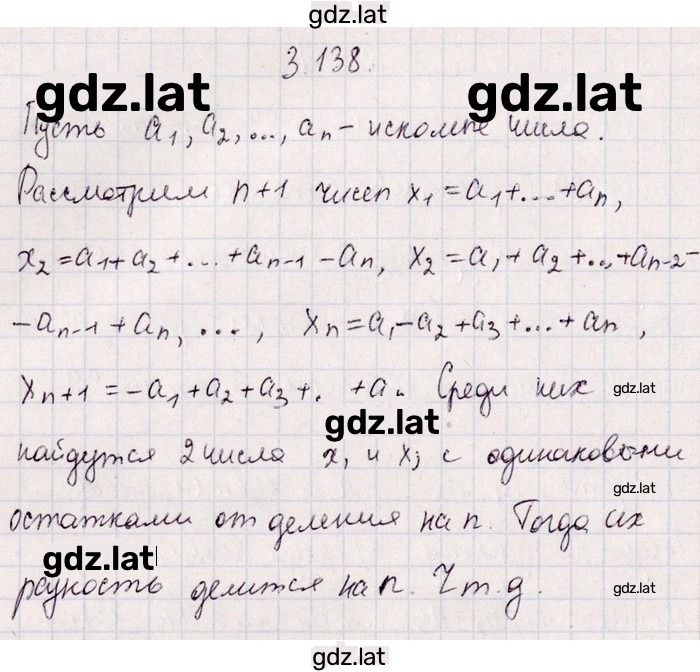 gdz.lat
3.138.
gdz.lat gdz.lat
Пусть a₁, a₂, ..., aₙ - искомые числа.
Рассмотрим n+1 чисел x₁ = a₁+...+aₙ,
x₂ = a₁+a₂+...+aₙ₋₁ - aₙ, x₂ = a₁+a₂+...+aₙ₋₂-
-aₙ₋₁+aₙ, ..., xₙ = a₁-a₂+a₃+...+aₙ,
xₙ₊₁ = -a₁+a₂+a₃+. +a. Среди них gdz.lat
gdz.lat
найдутся 2 числа xᵢ и xⱼ с одинаковыми
gdz.lat
остатками от деления на n. Тогда их
gdz.lat
разность делится на n. Ч.т.д. gdz.lat
gdz.lat